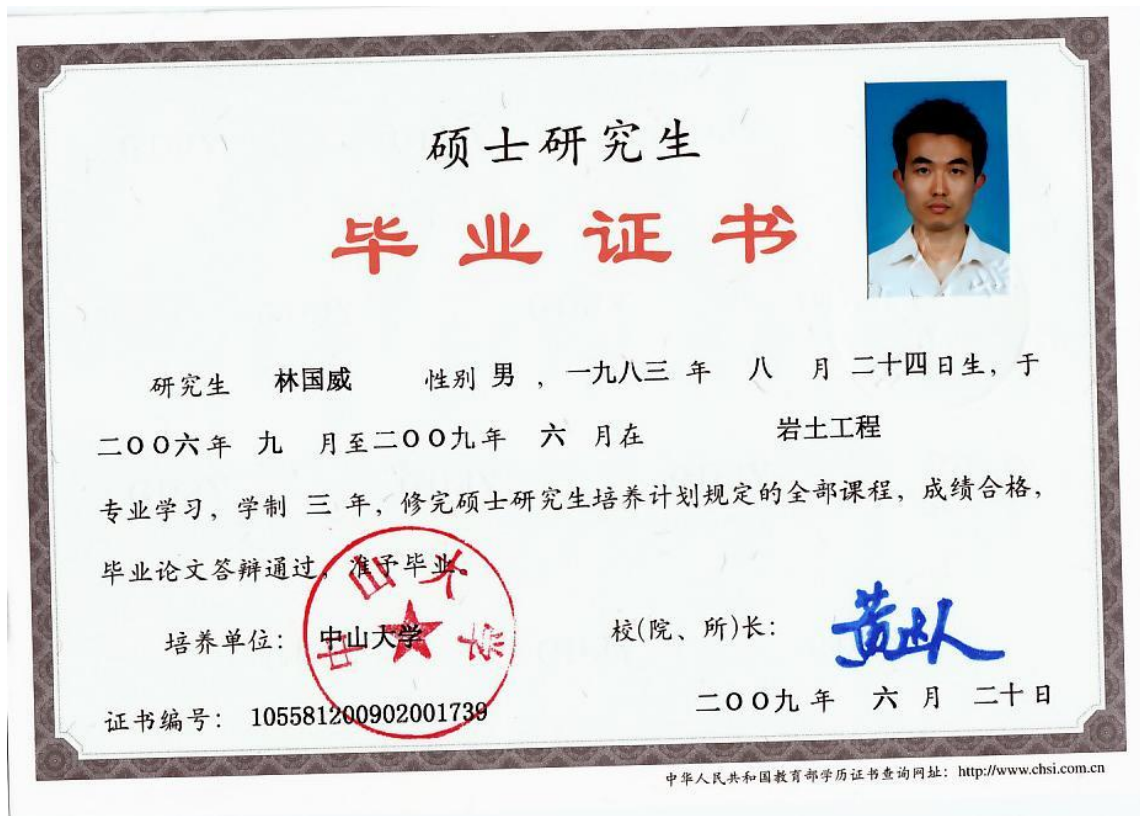 硕士研究生
毕业证书
研究生 林国威 性别 男 ，一九八三 年 八 月 二十四日生，于
二００六年 九 月至二００九年 六 月在 岩土工程
专业学习，学制 三 年，修完硕士研究生培养计划规定的全部课程，成绩合格，
毕业论文答辩通过，准予毕业。
中山大学
培养单位： 中山大学 校(院、所)长：
黄达人
证书编号： 105581200902001739 二００九 年 六 月 二十日
中华人民共和国教育部学历证书查询网址：http://www.chsi.com.cn